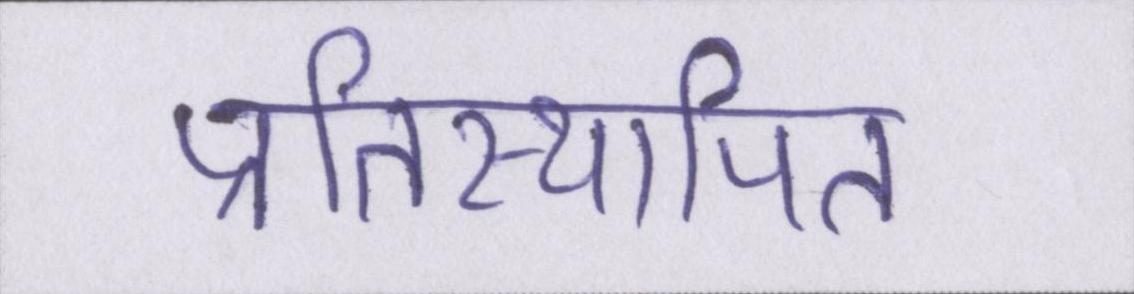 प्रतिस्थापित